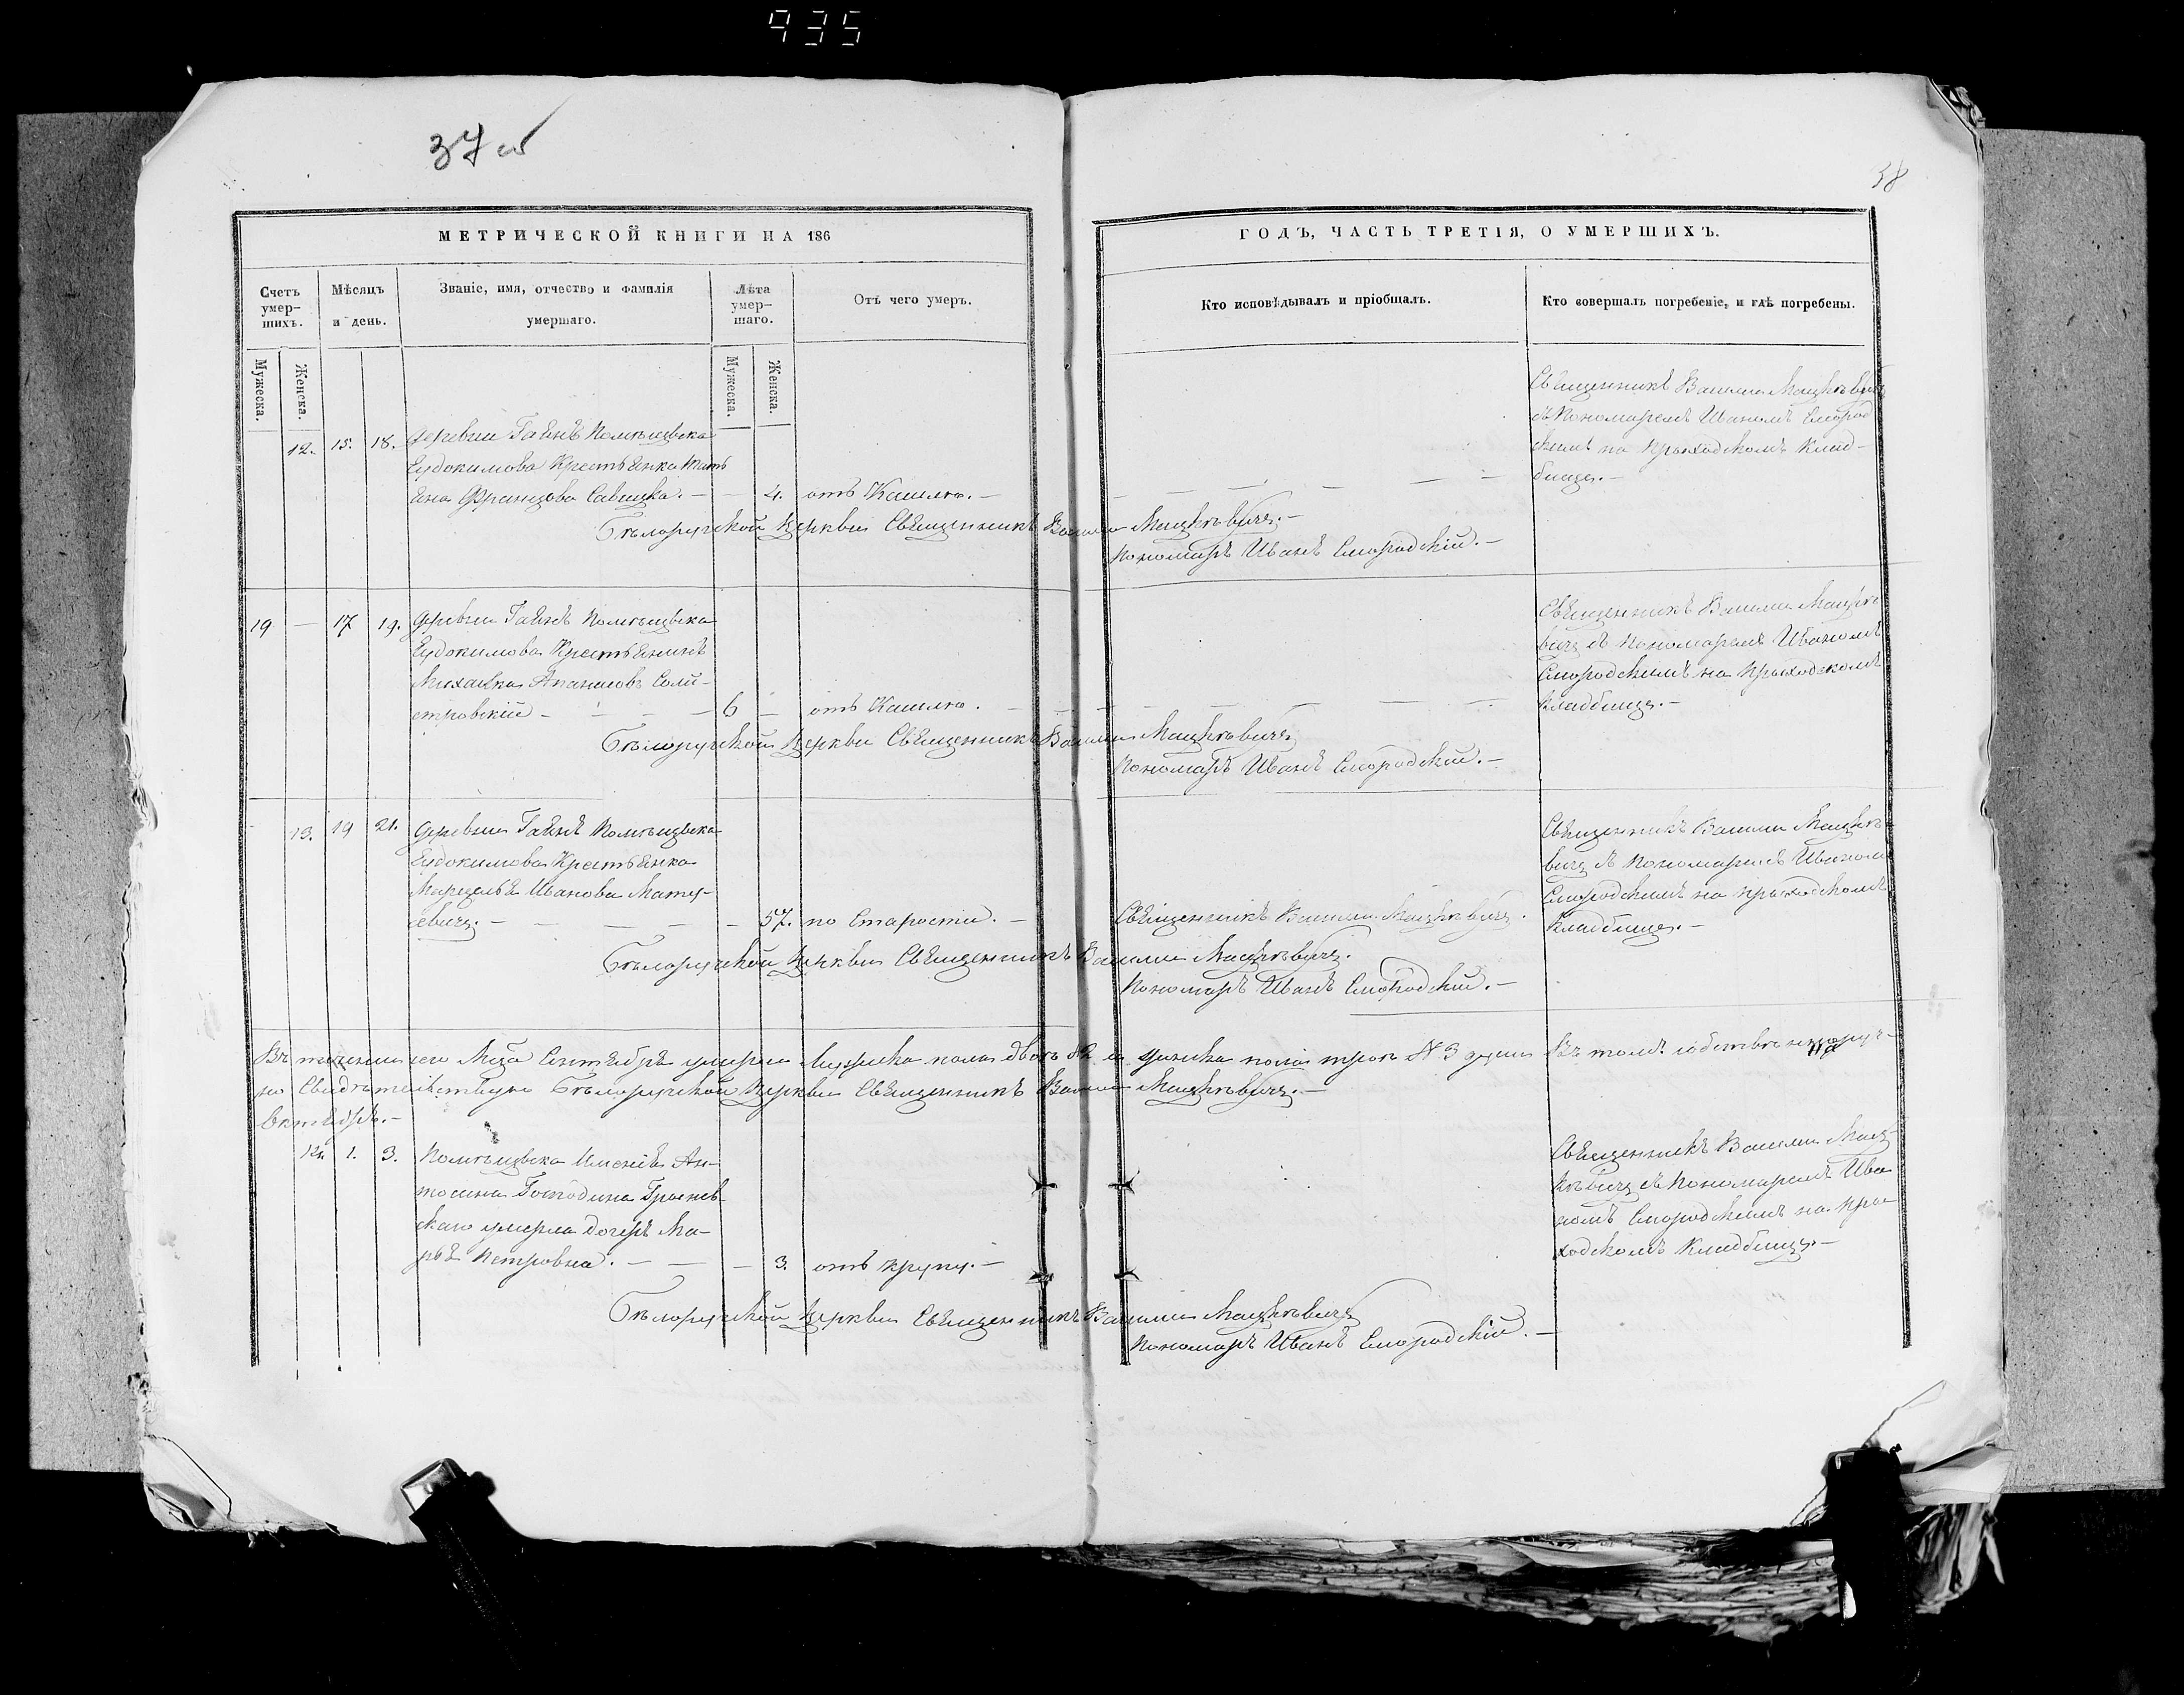 935
37 об
38
МЕТРИЧЕСКОЙ КНИГИ НА 186
ГОДЪ, ЧАСТЬ ТРЕТІЯ, О УМЕРШИХЪ.
Счетъ умер-
шихъ.
Мѣсяцъ
и день.
Званіе, имя, отчество и фамилія
умершаго.
Лѣта
умер-
шаго.
Отъ чего умеръ.
Кто исповѣдывалъ и пріобщалъ.
Кто совершалъ погребеніе, и гдѣ погребены.
Мужеска.
Женска.
Мужеска.
Женска.
12. 15. 18. Деревни Гаянъ Помѣщика
Евдокимова Крестьянка Тать
яна Францова Савицка. — 4. отъ Кашлю. —
Священникъ Василій Мацкѣвичъ
съ Пономаремъ Иваномъ Смород
скимъ на Приходскомъ Клад-
бищѣ. —
Бѣлоручской Церкви Священникъ Василій Мацкѣвичъ. —
Пономарь Иванъ Смородскій. —
19 — 17 19. Деревни Гаянъ Помѣщика
Евдокимова Крестьянинъ
Михаилъ Апанасовъ
6 — отъ Кашлю. —
Священникъ Василій Мацкѣ
вичъ съ Пономаремъ Иваномъ
Смородскимъ на Приходскомъ
Кладбищѣ. —
Бѣлоручской Церкви Священникъ Василій Мацкѣвичъ
Пономарь Иванъ Смородскій. —
13. 19 21. Деревни Гаянъ Помѣщика
Евдокимова Крестьянка
Марцелья Иванова Мату-
севичъ. — 57. по Старости. — Священникъ Василій Мацкѣвичъ.
Священникъ Василій Мацкѣ
вичъ съ Пономаремъ Иваномъ
Смородскимъ на приходскомъ
Кладбищѣ. —
Бѣлоручской Церкви Священникъ Василій Мацкѣвичъ.
Пономарь Иванъ Смородскій. —
Въ теченіи сего Мѣсяца Сентября умерли Мужска пола двое №2 а женска пола трое №3 души Въ томъ собственноруч-
но Свидѣтельствую Бѣлоручской Церкви Священникъ Василій Мацкѣвичъ. —
Октябрь. —
14. 1. 3. Помѣщика Имѣнія Ан-
Господина
умерла дочерь Ма-
рья Петровна. — 3. отъ крупу. —
Священникъ Василій Мац-
кѣвичъ съ Пономаремъ Ива
номъ Смородскимъ на При
ходскомъ Кладбищѣ. —
Бѣлоручской Церкви Священникъ Василій Мацкѣвичъ
Пономарь Иванъ Смородскій. —